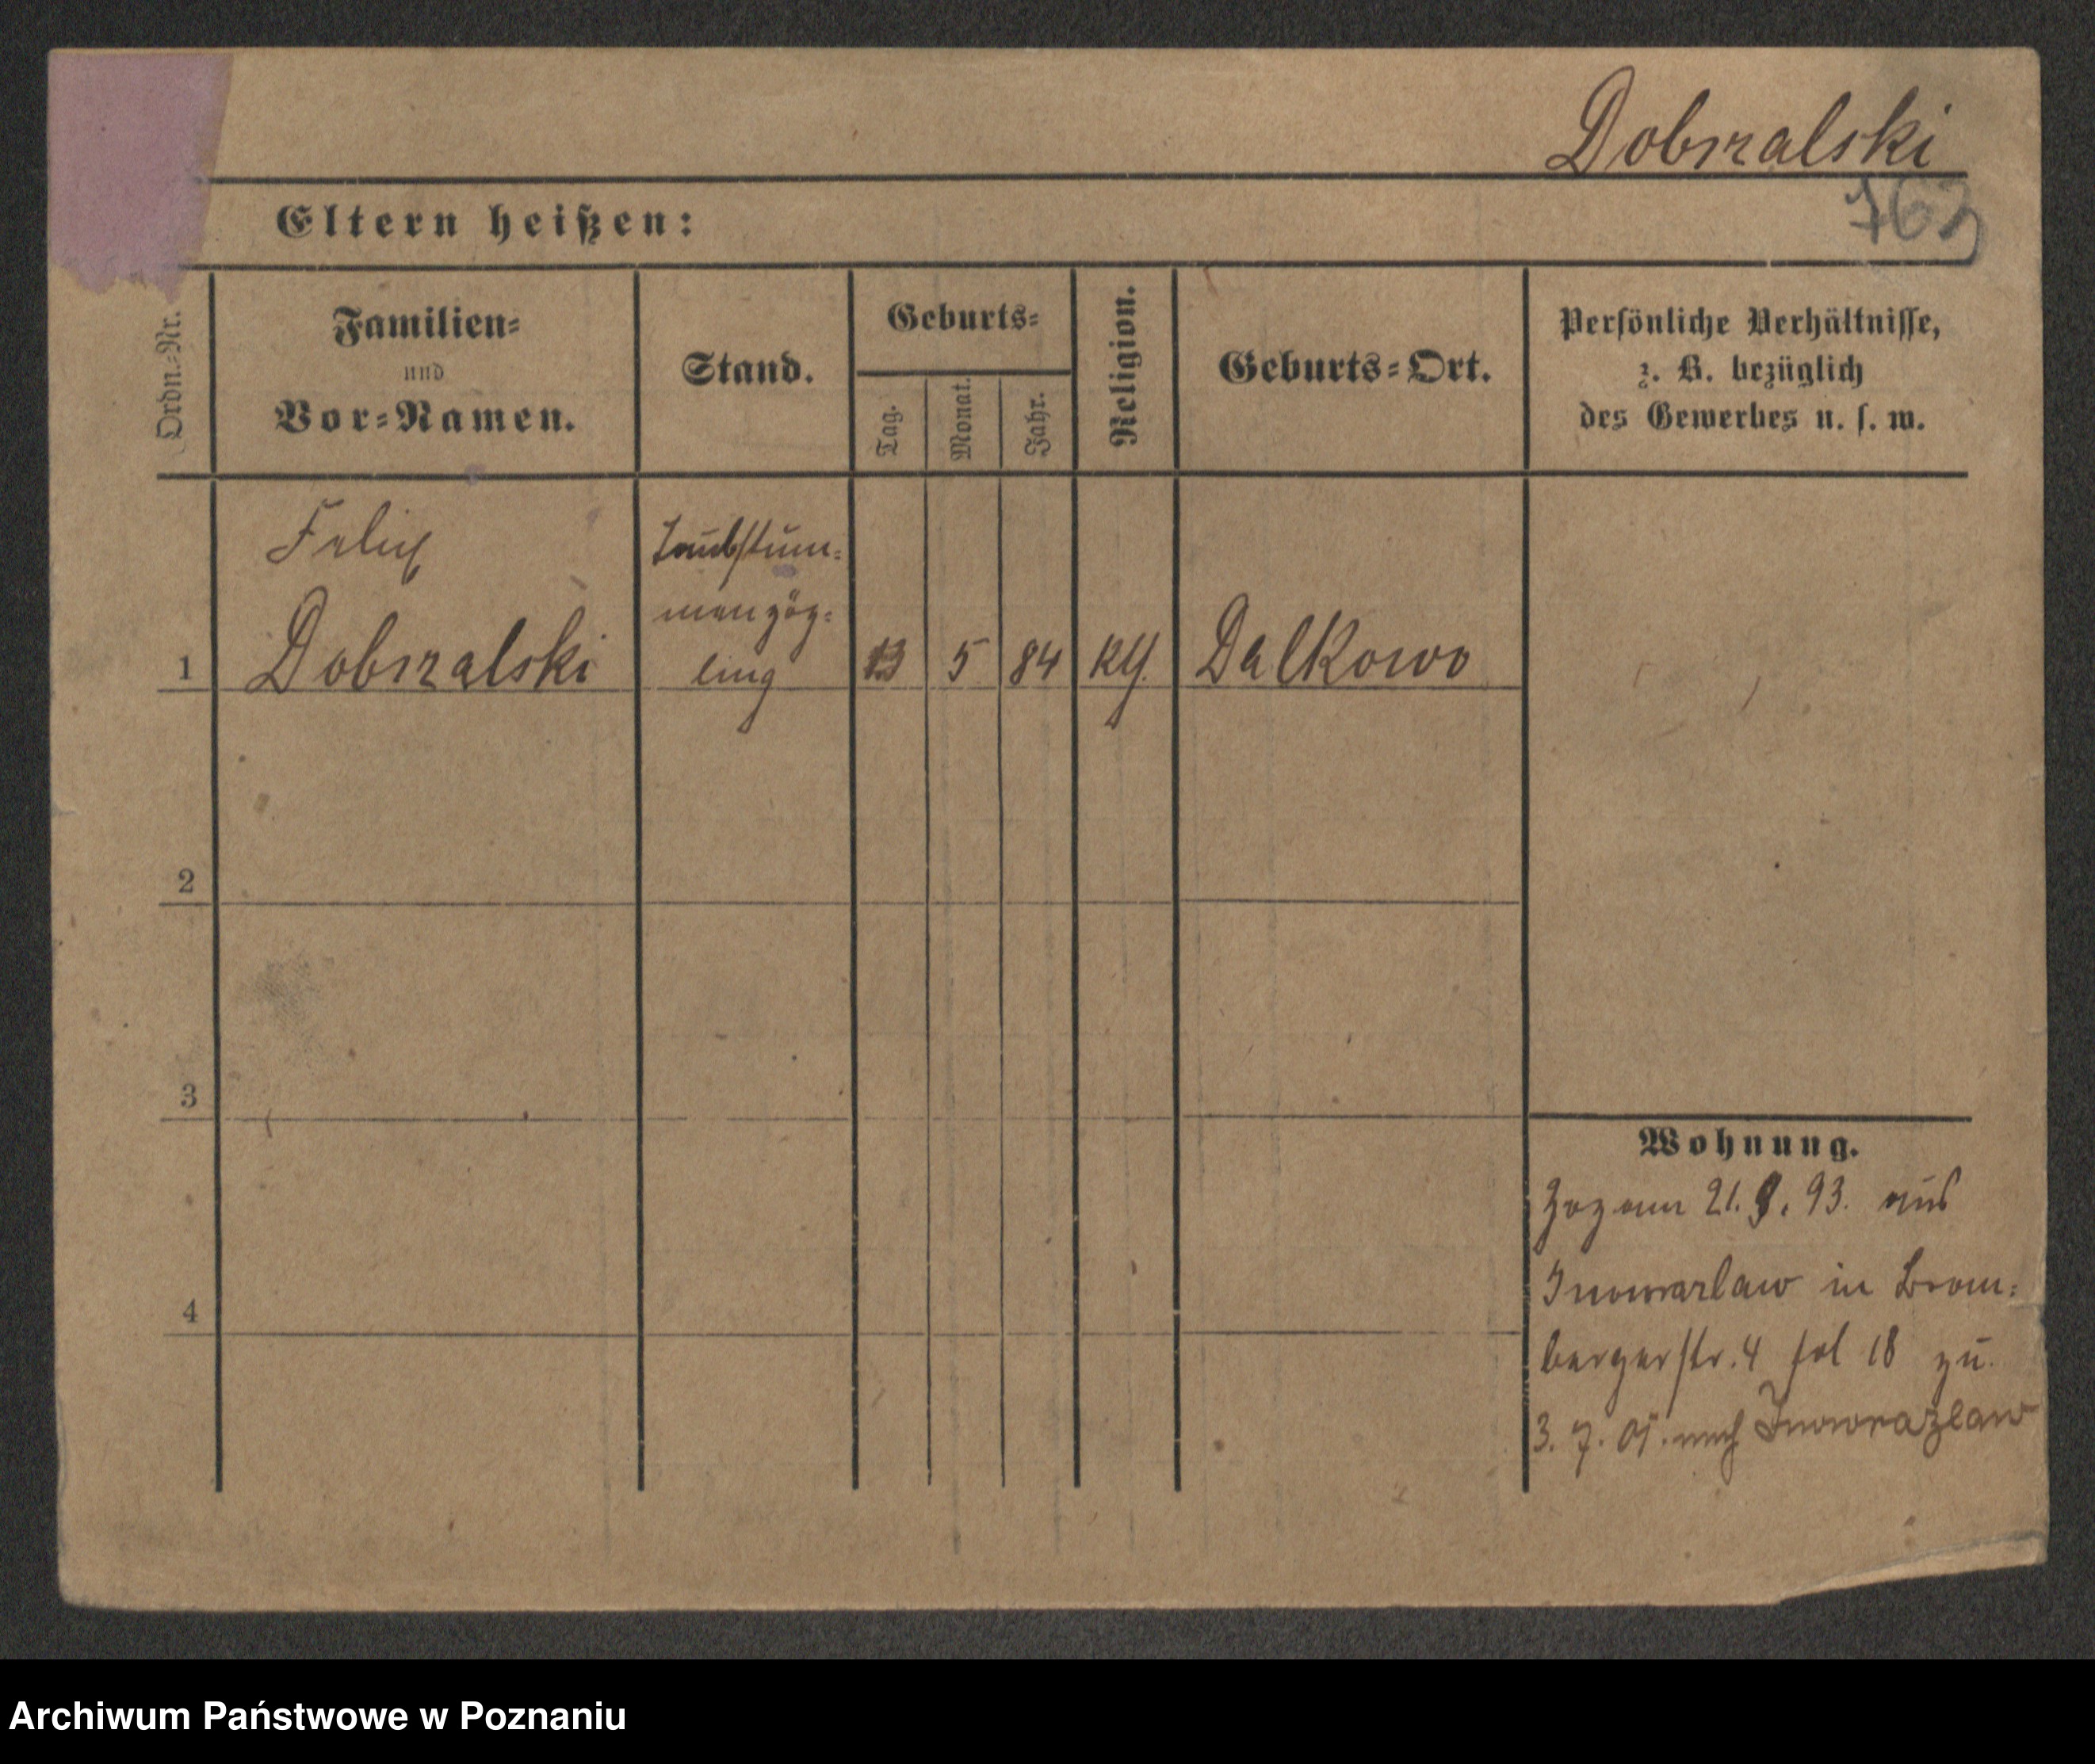 Dobrzalski
763
Eltern heißen:
Ordn.-Nr.
Familien-
und
Vor-Namen.
Stand.
Geburts-
Tag.
Monat.
Jahr.
Religion.
Geburts-Ort.
Persönliche Verhältnisse,
z. B. bezüglich
des Gewerbes u. s. w.
Felix
Taubstum-
menzög-
1 Dobrzalski ling 13 5 84 Dalkowo
2
3
4
Wohnung.
Zog am 21. 93. aus
Inowrazlaw in Brom-
bergerstr. 4 fol 18 zu.
3. 7. 01. nach Inowrazlaw
Archiwum Państwowe w Poznaniu